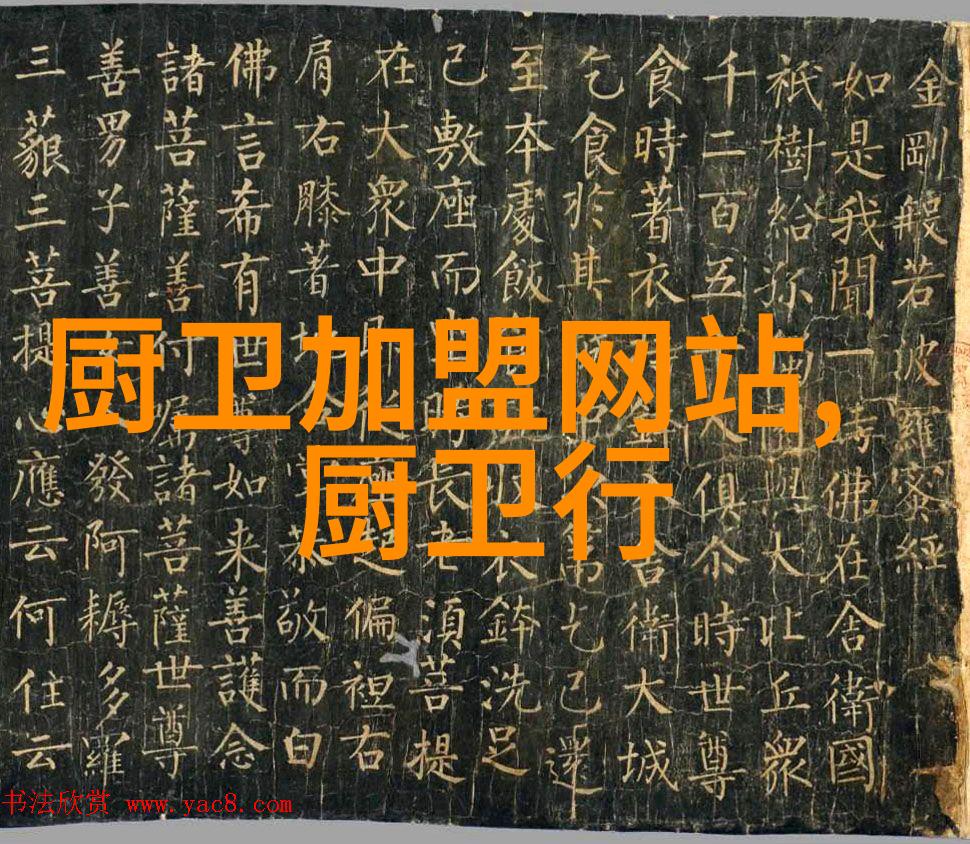 金剛般若波羅蜜經
如是我聞一時佛在舍衛國
祇樹給孤園與大比丘衆
千二百五人俱尒時世尊
食時著衣舍衛大城
乞食於其乞已還
至本處飯食衣鉢洗足
已敷座而坐時長老湏菩提
在大衆中即從座起偏袒右
肩右膝著地合恭敬而白
佛言希有世尊如来善護念
諸菩薩善付嘱諸菩薩世尊
善男子善女發阿耨多羅
三藐三菩提心應云何住云
厨卫加盟网站,
厨卫行
书法欣赏 www.yac8.com